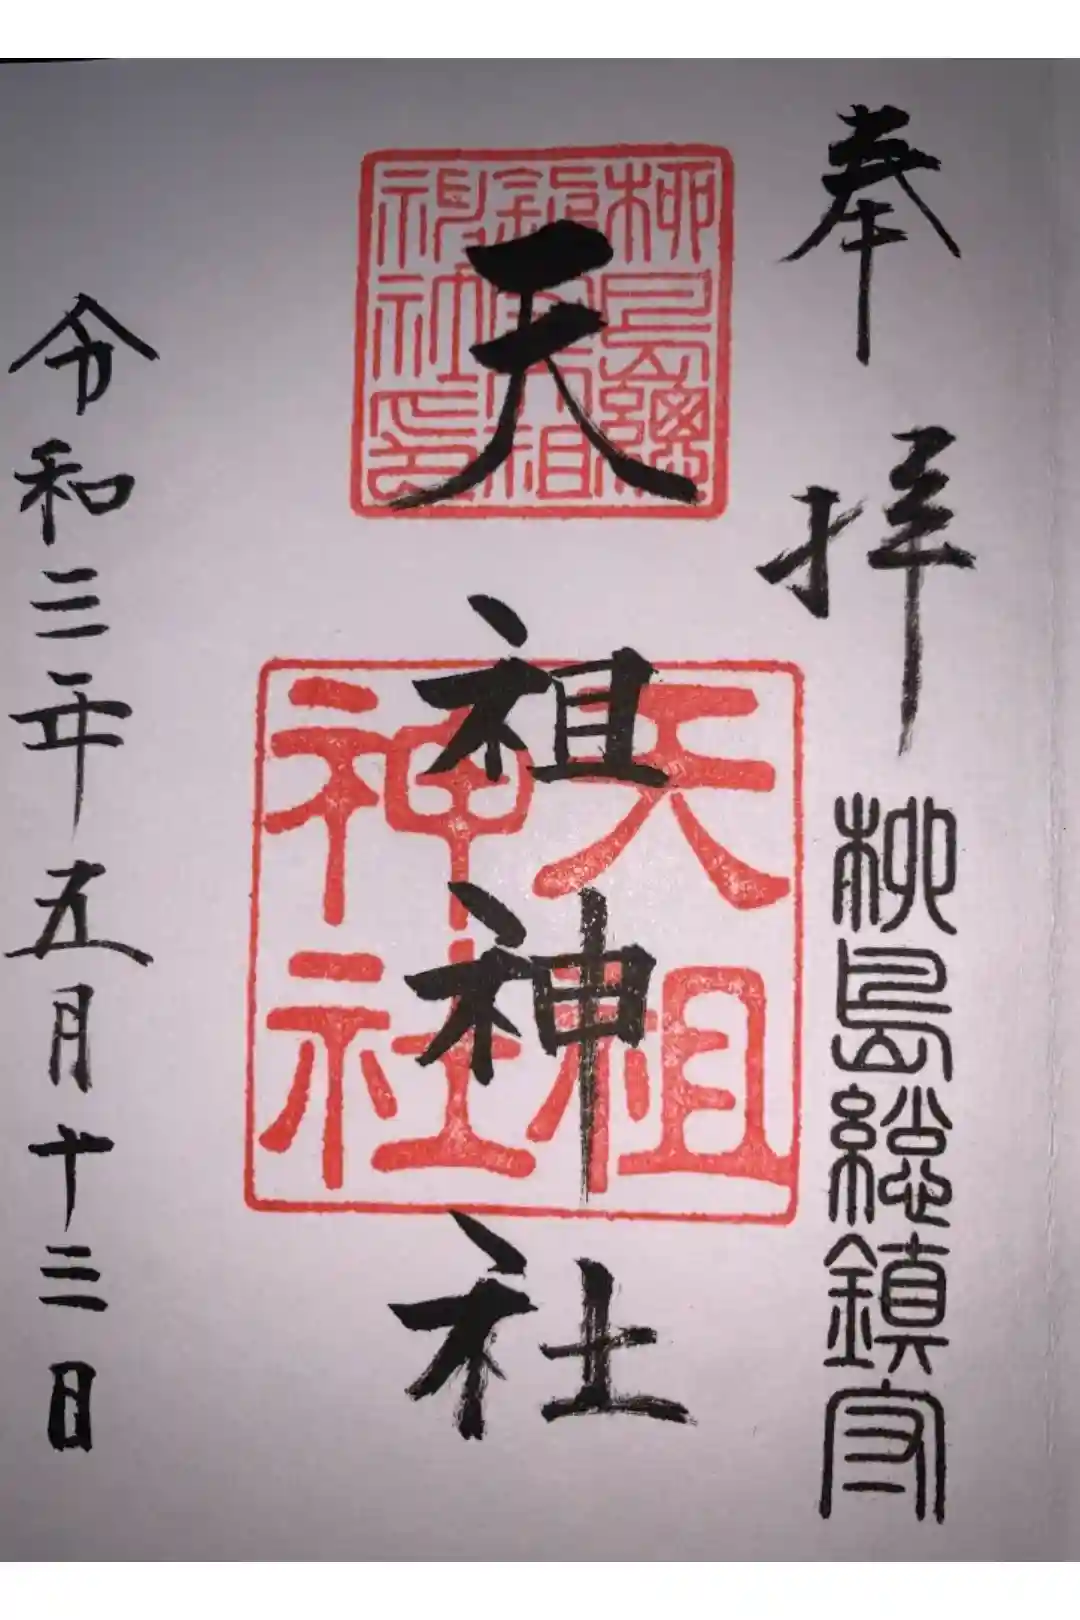 奉拝
柳島総鎮守
天祖神社
柳島總
鎮守天祖
神社之印
天祖
神社
令和三年五月十三日